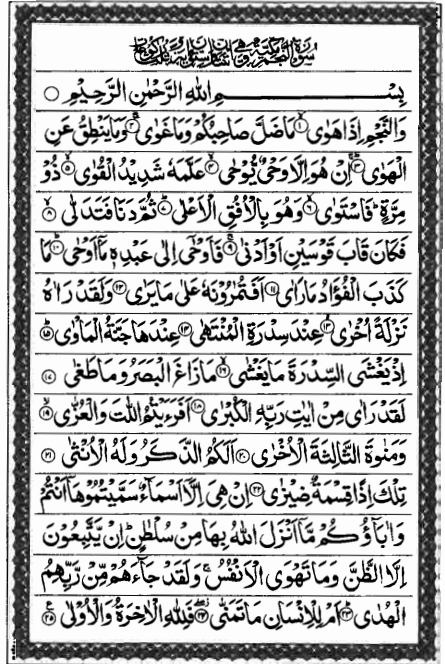 سورة النجم مكية وهي
بِسْمِ اللهِ الرَّحْمٰنِ الرَّحِيْمِ ○
وَالنَّجْمِ اِذَا هَوٰى ① مَا ضَلَّ صَاحِبُكُمْ وَمَا غَوٰى ② وَمَا يَنْطِقُ عَنِ
الْهَوٰى ③ اِنْ هُوَ اِلَّا وَحْيٌ يُّوْحٰى ④ عَلَّمَهٗ شَدِيْدُ الْقُوٰى ⑤ ذُوْ
مِرَّةٍ ؕ فَاسْتَوٰى ⑥ وَهُوَ بِالْاُفُقِ الْاَعْلٰى ⑦ ثُمَّ دَنَا فَتَدَلّٰى ⑧
فَكَانَ قَابَ قَوْسَيْنِ اَوْ اَدْنٰى ⑨ فَاَوْحٰۤى اِلٰى عَبْدِهٖ مَاۤ اَوْحٰى ⑩ مَا
كَذَبَ الْفُؤَادُ مَا رَاٰى ⑪ اَفَتُمٰرُوْنَهٗ عَلٰى مَا يَرٰى ⑫ وَلَقَدْ رَاٰهُ
نَزْلَةً اُخْرٰى ⑬ عِنْدَ سِدْرَةِ الْمُنْتَهٰى ⑭ عِنْدَهَا جَنَّةُ الْمَاْوٰى ⑮
اِذْ يَغْشَى السِّدْرَةَ مَا يَغْشٰى ⑯ مَا زَاغَ الْبَصَرُ وَمَا طَغٰى ⑰
لَقَدْ رَاٰى مِنْ اٰيٰتِ رَبِّهِ الْكُبْرٰى ⑱ اَفَرَءَيْتُمُ اللّٰتَ وَالْعُزّٰى ⑲
وَمَنٰوةَ الثَّالِثَةَ الْاُخْرٰى ⑳ اَلَكُمُ الذَّكَرُ وَلَهُ الْاُنْثٰى ㉑
تِلْكَ اِذًا قِسْمَةٌ ضِيْزٰى ㉒ اِنْ هِيَ اِلَّاۤ اَسْمَآءٌ سَمَّيْتُمُوْهَاۤ اَنْتُمْ
وَاٰبَآؤُكُمْ مَّاۤ اَنْزَلَ اللهُ بِهَا مِنْ سُلْطٰنٍ ؕ اِنْ يَّتَّبِعُوْنَ
اِلَّا الظَّنَّ وَمَا تَهْوَى الْاَنْفُسُ ۚ وَلَقَدْ جَآءَهُمْ مِّنْ رَّبِّهِمُ
الْهُدٰى ㉓ اَمْ لِلْاِنْسَانِ مَا تَمَنّٰى ㉔ فَلِلّٰهِ الْاٰخِرَةُ وَالْاُوْلٰى ㉕